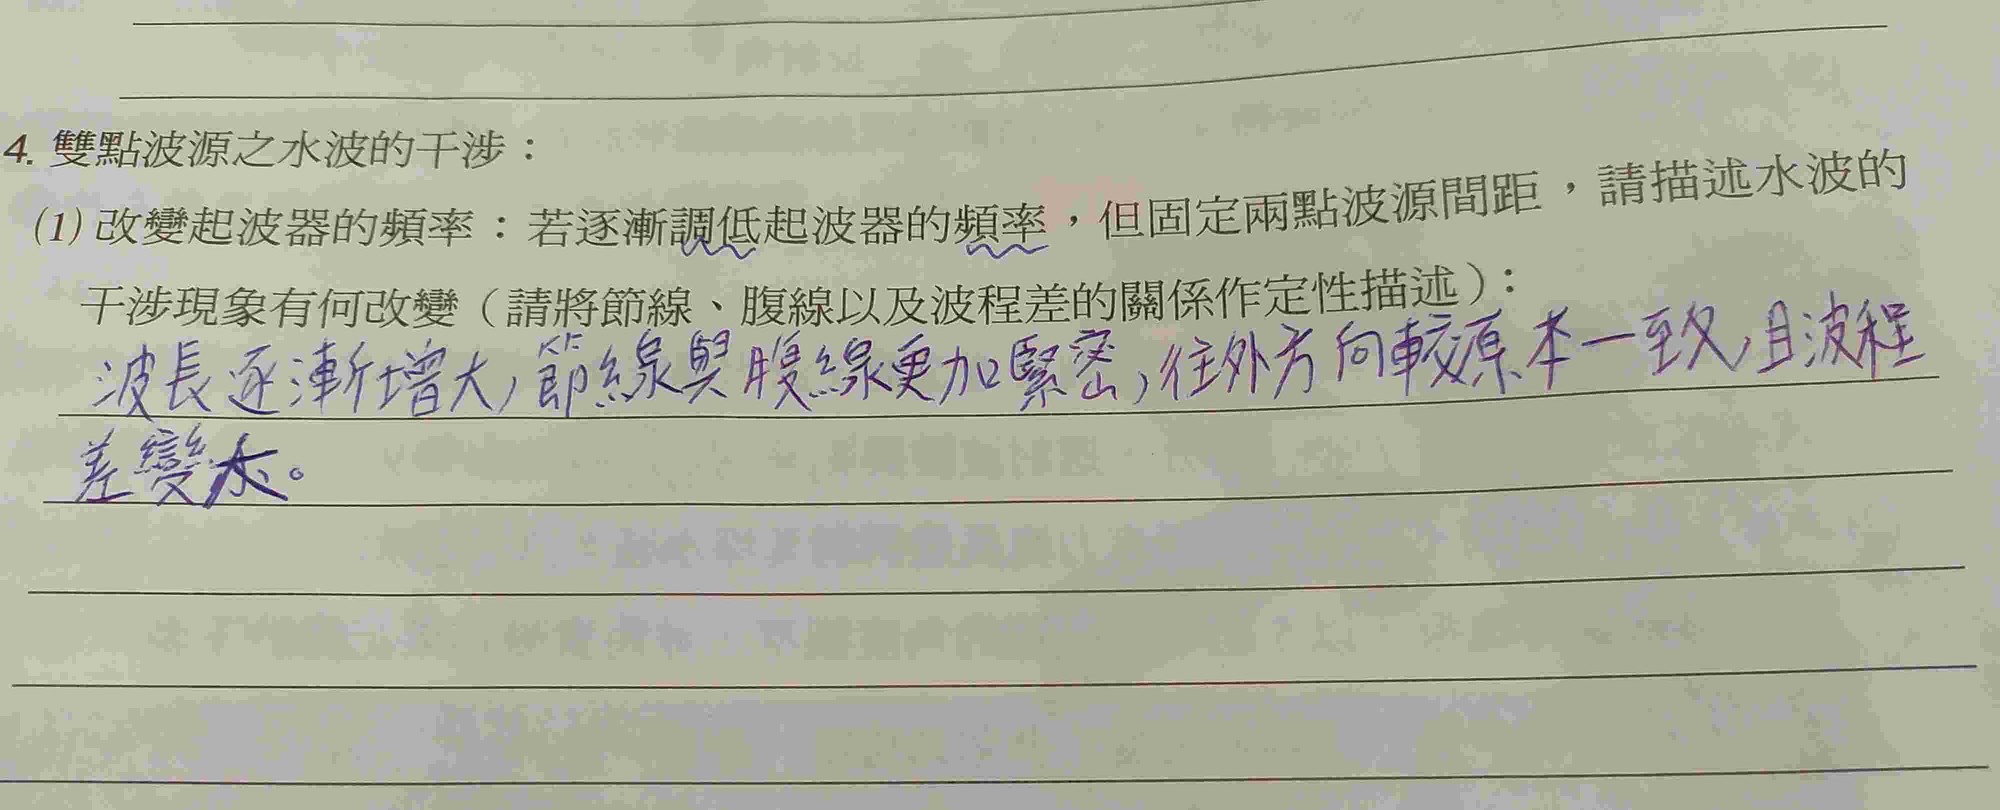 4. 雙點波源之水波的干涉：
(1) 改變起波器的頻率：若逐漸調低起波器的頻率，但固定兩點波源間距，請描述水波的
干涉現象有何改變（請將節線、腹線以及波程差的關係作定性描述）：
波長逐漸增大，節線與腹線更加緊密，往外方向較原本一致，且波程
差變大。